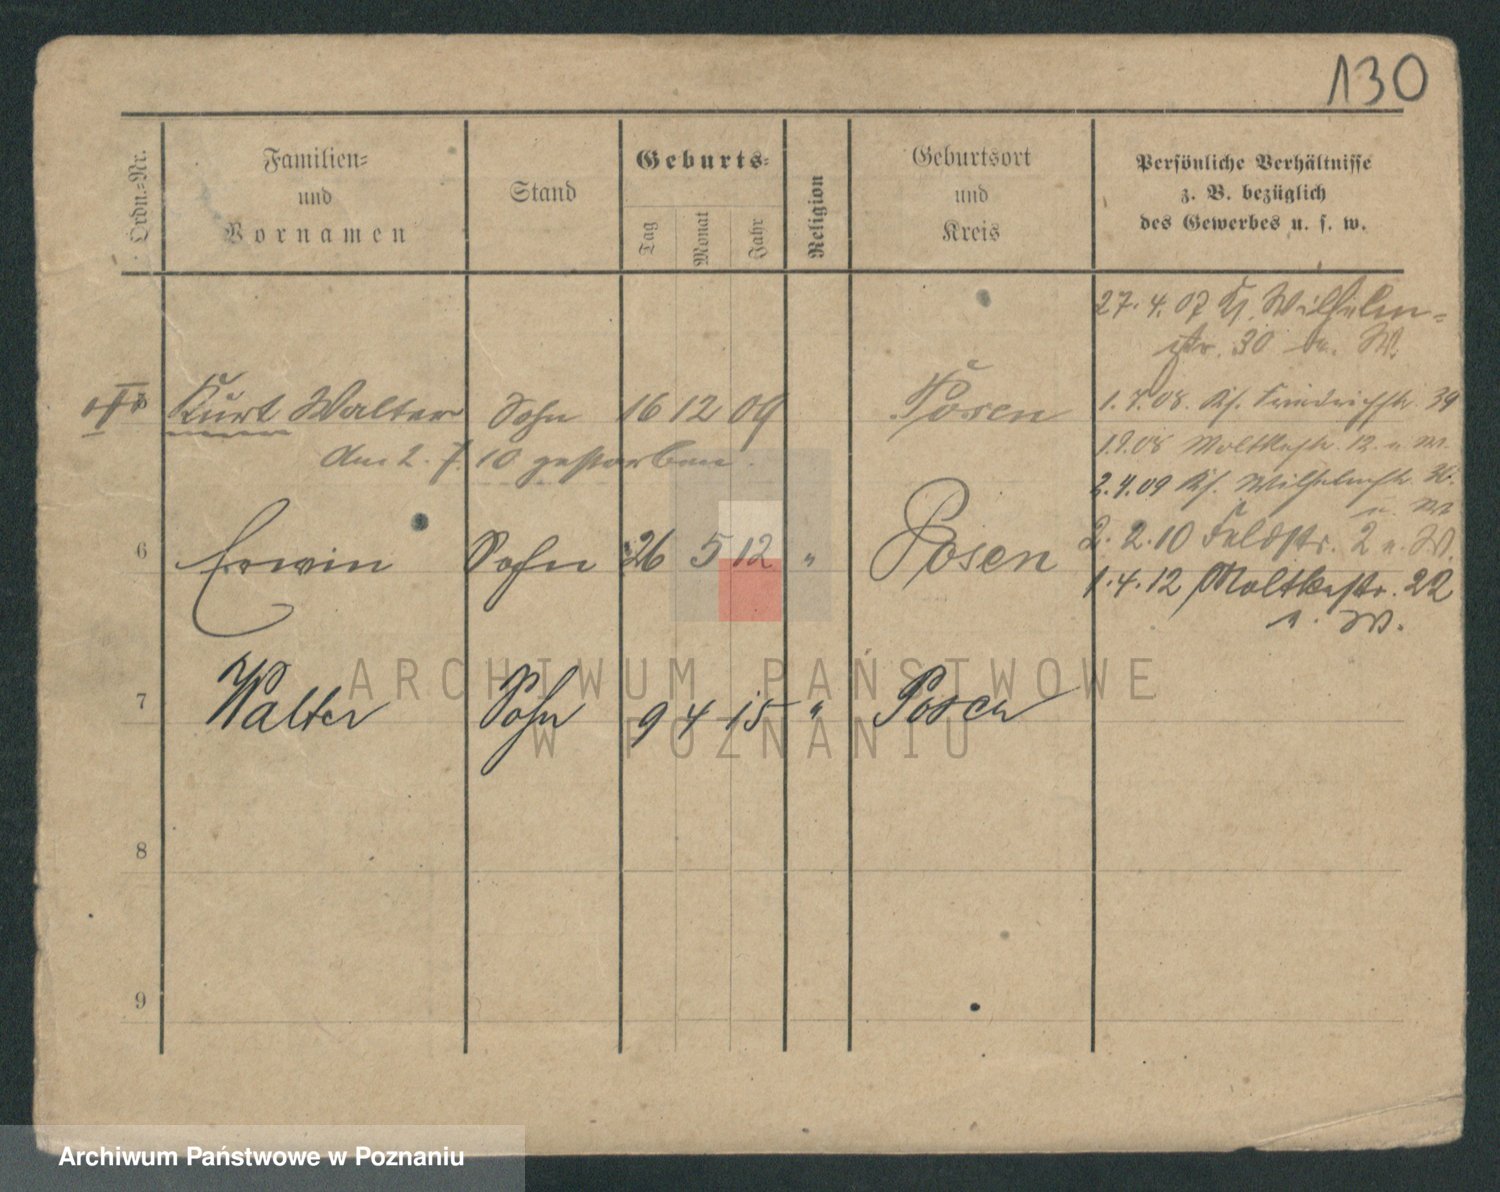 130
Ordn.-Nr.
Familien- und Vornamen
Stand
Geburts-
Tag
Monat
Jahr
Religion
Geburtsort und Kreis
Persönliche Verhältnisse
z. B. bezüglich
des Gewerbes u. s. w.
27.4.07 Kl. Wilhelm-
str. 30 W.
5 Kurt Walter Sohn 16 12 09 Posen
1.4.08. Friedrichstr. 39
am 2.7.10 gestorben.
1.9.08 Moltkestr. 12. u. W.
2.4.09 Wilhelmstr. 36.
u. W
6 Erwin Sohn 26 5 12 " Posen
2.2.10 Feldstr. 2 u. W.
1.4.12 Moltkestr. 22
u. W.
ARCHIWUM PAŃSTWOWE
W POZNANIU
7 Walter Sohn 9 4 15 " Posen
8
9
Archiwum Państwowe w Poznaniu